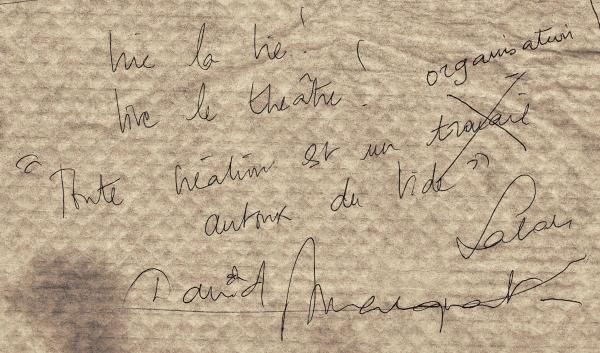 Vive la vie !
Vive le théâtre !
organisation
"Toute création est un travail
autour du vide"
David